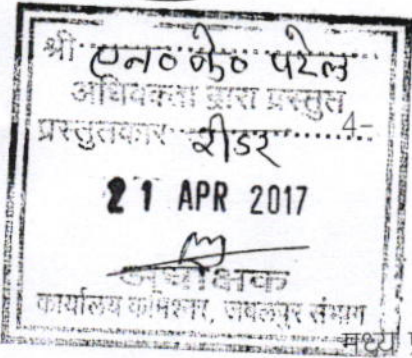 श्री एन० के० पटेल
अधिवक्ता द्वारा प्रस्तुत
प्रस्तुतकार रीडर 4-
21 APR 2017
अधीक्षक
कार्यालय कमिश्नर, जबलपुर संभाग
मध्य